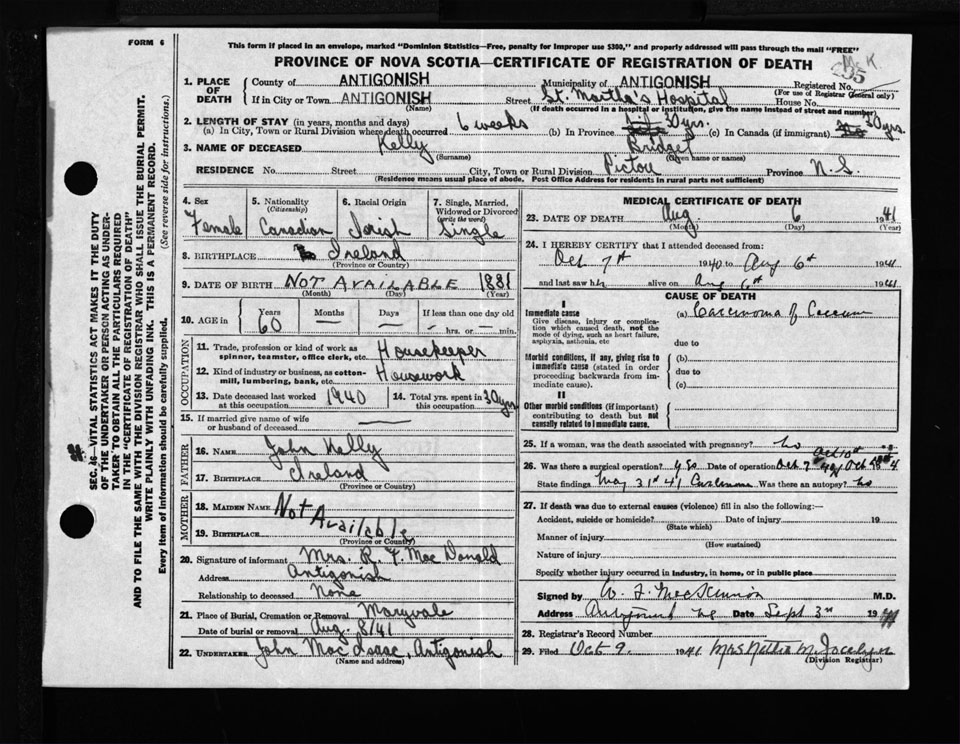 FORM 6
This form if placed in an envelope, marked "Dominion Statistics—Free, penalty for improper use $300," and properly addressed will pass through the mail "FREE"
PROVINCE OF NOVA SCOTIA—CERTIFICATE OF REGISTRATION OF DEATH
1. PLACE OF DEATH
County of ANTIGONISH Municipality of ANTIGONISH Registered No.
(For use of Registrar General only)
If in City or Town ANTIGONISH Street St. Martha's Hospital House No.
(Name) (If death occurred in a hospital or institution, give the name instead of street and number)
2. LENGTH OF STAY (in years, months and days)
(a) In City, Town or Rural Division where death occurred 6 weeks (b) In Province 30 yrs. (c) In Canada (if immigrant) 30 yrs.
3. NAME OF DECEASED Kelly Bridget
(Surname) (Given name or names)
RESIDENCE No. Street City, Town or Rural Division Pictou Province N.S.
(Residence means usual place of abode. Post Office Address for residents in rural parts not sufficient)
4. Sex
Female
5. Nationality
(Citizenship)
Canadian
6. Racial Origin
Irish
7. Single, Married,
Widowed or Divorced
(write the word)
Single
8. BIRTHPLACE Ireland
(Province or Country)
9. DATE OF BIRTH NOT AVAILABLE 1881
(Month) (Day) (Year)
10. AGE in
Years Months Days If less than one day old
60 — — — hrs. or — min.
OCCUPATION
11. Trade, profession or kind of work as Housekeeper
spinner, teamster, office clerk, etc.
12. Kind of industry or business, as cotton- Housework
mill, lumbering, bank, etc.
13. Date deceased last worked 1940
at this occupation
14. Total yrs. spent in 30 yrs.
this occupation
15. If married give name of wife
or husband of deceased —
FATHER
16. NAME John Kelly
17. BIRTHPLACE Ireland
(Province or Country)
MOTHER
18. MAIDEN NAME Not Available
19. BIRTHPLACE
(Province or Country)
20. Signature of informant Mrs. R. F. MacDonald
Address Antigonish
Relationship to deceased None
21. Place of Burial, Cremation or Removal Maryvale
Date of burial or removal Aug. 8/41
22. UNDERTAKER John MacIsaac, Antigonish
(Name and address)
MEDICAL CERTIFICATE OF DEATH
23. DATE OF DEATH Aug. 6 1941
(Month) (Day) (Year)
24. I HEREBY CERTIFY that I attended deceased from:
Oct 7th 1940 to Aug 6th 1941
and last saw her alive on Aug 6th 1941
CAUSE OF DEATH
I
Immediate cause
Give disease, injury or complication which caused death, not the mode of dying, such as heart failure, asphyxia, asthenia, etc
(a) Carcinoma of Cecum
due to
Morbid conditions, if any, giving rise to immediate cause (stated in order proceeding backwards from immediate cause).
(b)
due to
(c)
II
Other morbid conditions (if important) contributing to death but not causally related to immediate cause.
25. If a woman, was the death associated with pregnancy? no
26. Was there a surgical operation? yes Date of operation Oct 7th
State findings May 31st 41 Carcinoma Was there an autopsy? no
27. If death was due to external causes (violence) fill in also the following:—
Accident, suicide or homicide? Date of injury 19
(State which)
Manner of injury
(How sustained)
Nature of injury
Specify whether injury occurred in industry, in home, or in public place
Signed by M.D.
Address Antigonish NS Date Sept 3rd 19
28. Registrar's Record Number
29. Filed Oct 9 1941
(Division Registrar)
SEC. —VITAL STATISTICS ACT MAKES IT THE DUTY
OF THE UNDERTAKER OR PERSON ACTING AS UNDER-
TAKER TO OBTAIN ALL THE PARTICULARS REQUIRED
IN THE "CERTIFICATE OF REGISTRATION OF DEATH"
AND TO FILE THE SAME WITH THE DIVISION REGISTRAR WHO SHALL ISSUE THE BURIAL PERMIT.
WRITE PLAINLY WITH UNFADING INK. THIS IS A PERMANENT RECORD.
Every item of information should be carefully supplied. (See reverse side for instructions.)